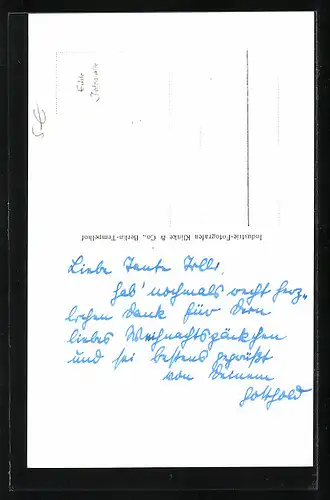 Echte
Fotografie
5€
Industrie-Fotografen Klinke & Co., Berlin-Tempelhof
Liebe Tante Trolli,
hab' nochmals recht herz-
lichen Dank für Dein
liebes Weihnachtspäckchen
und sei bestens gegrüßt
von Deinem
Gotthold